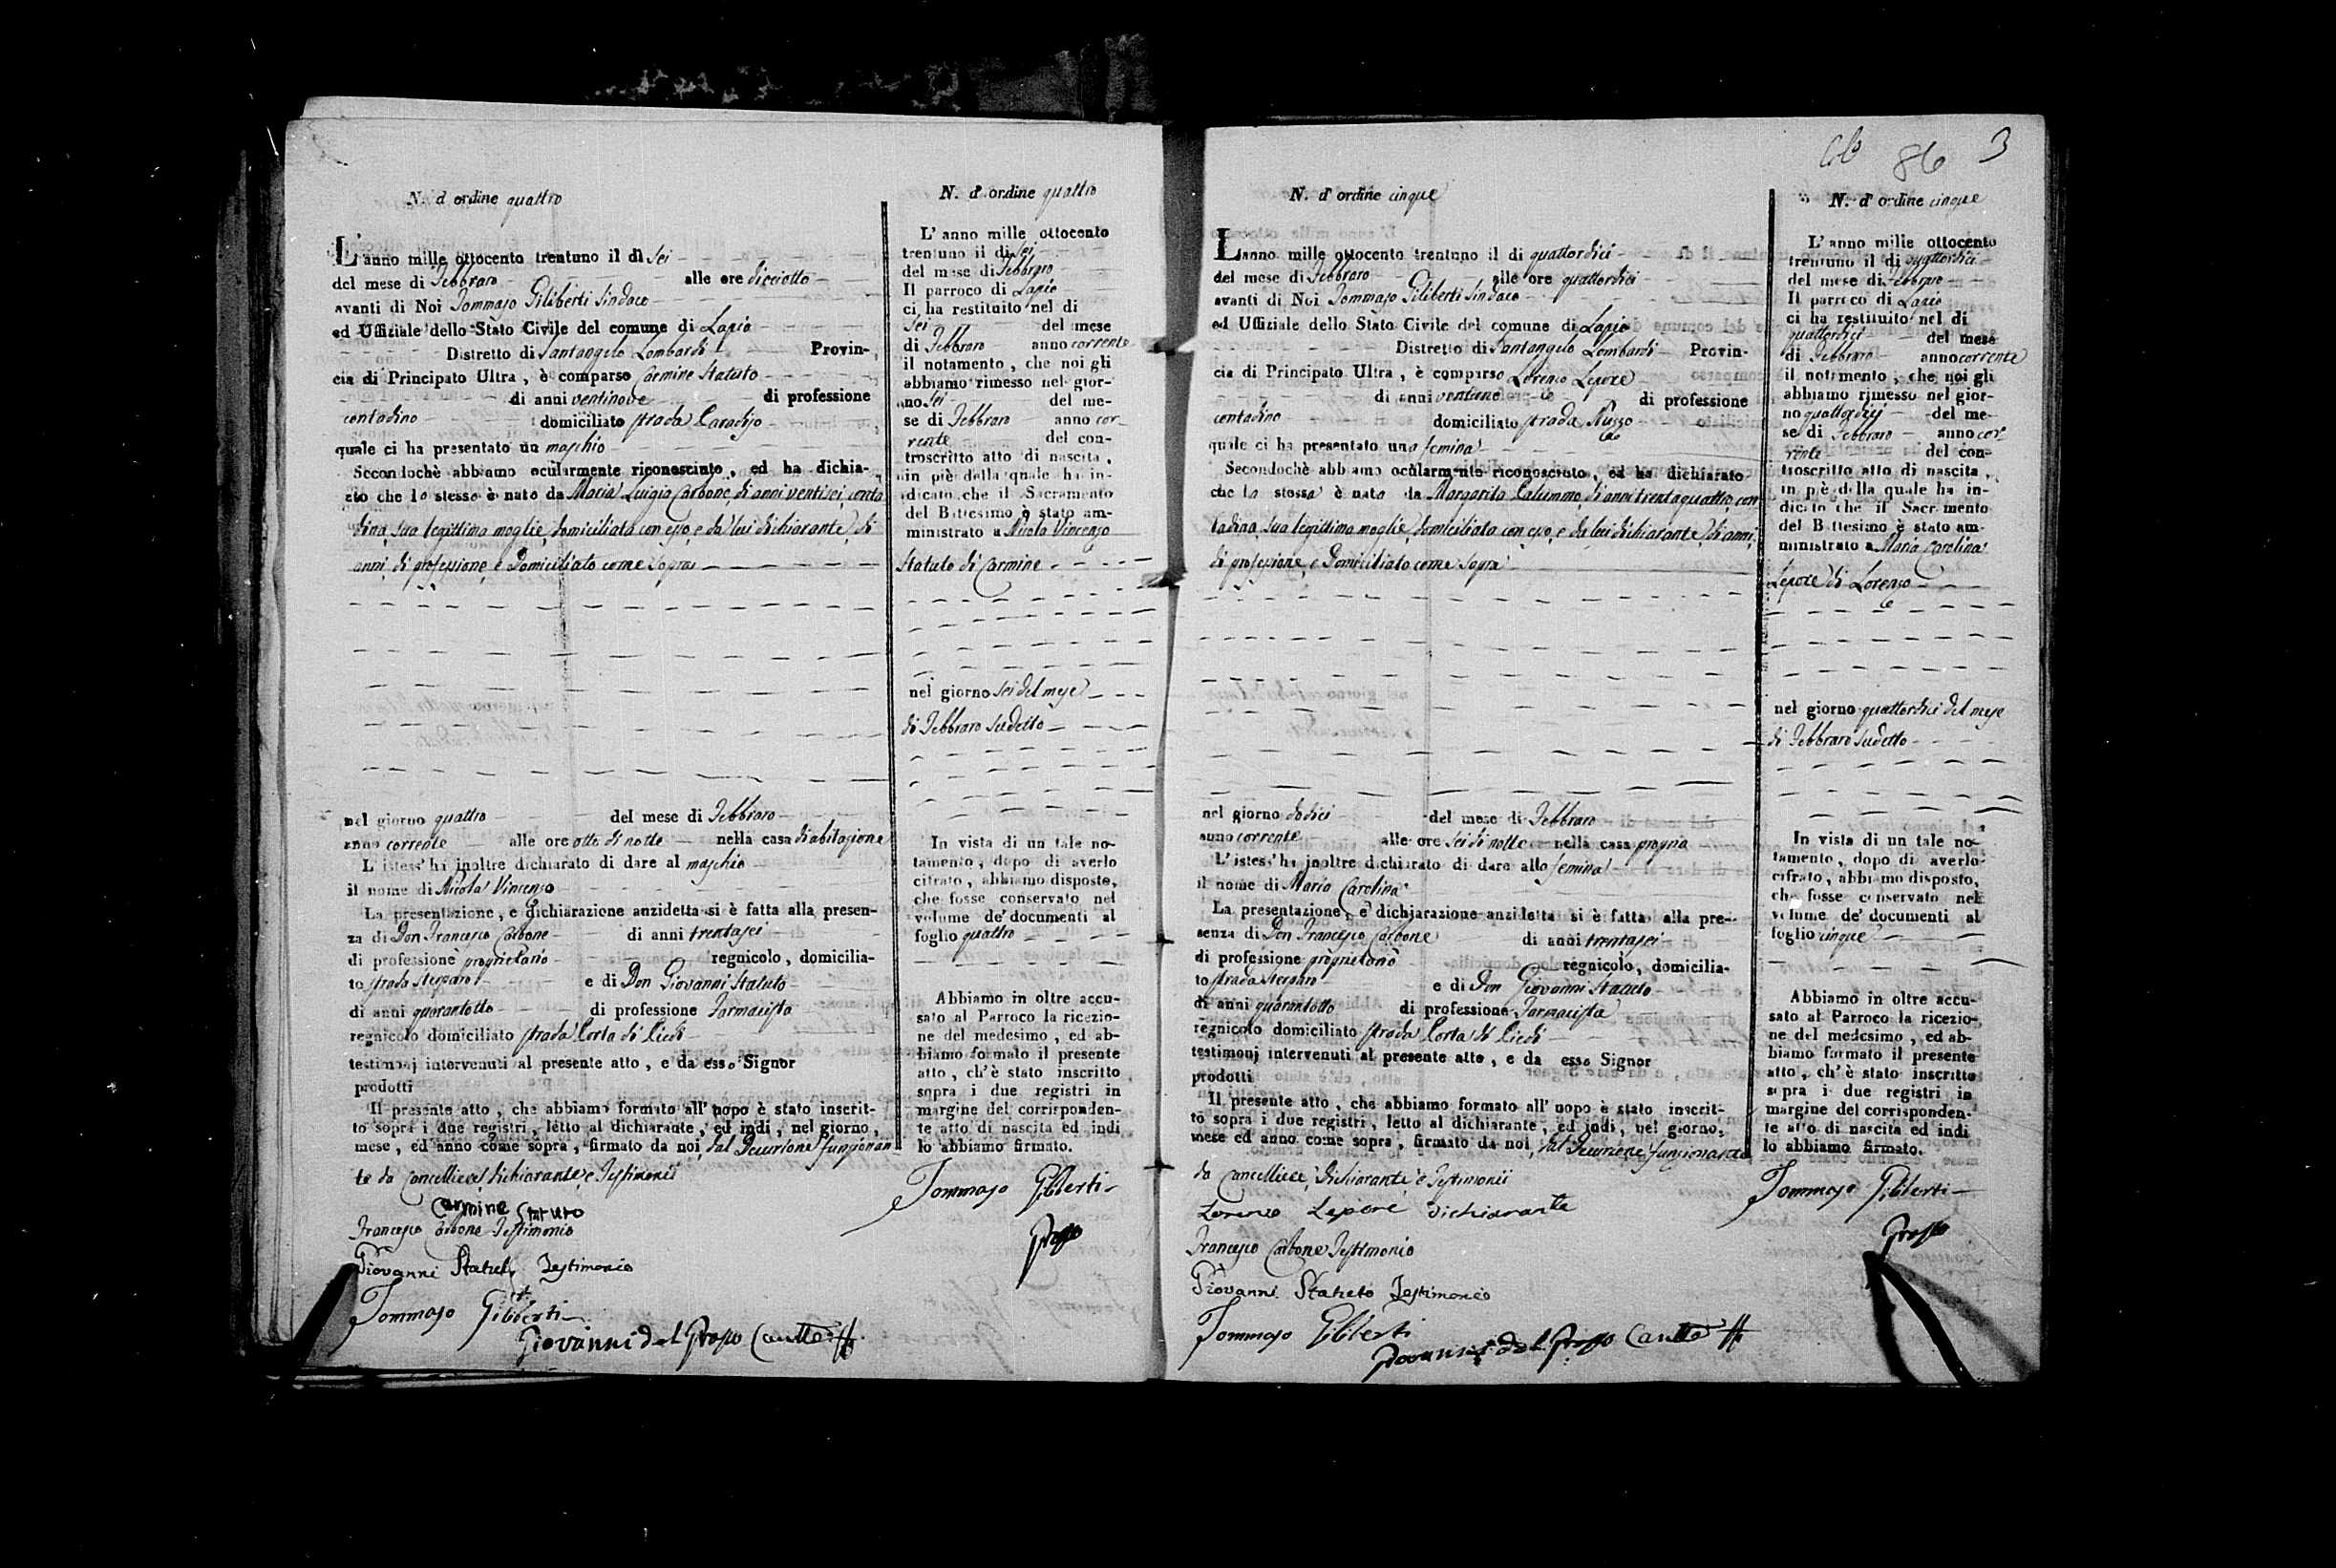 N. d'ordine quattro
L'anno mille ottocento trentuno il di sei
del mese di Febbraro alle ore diciotto
avanti di Noi Tommaso Giliberti Sindaco
ed Uffiziale dello Stato Civile del comune di Lapio
Distretto di Santangelo Lombardi Provin-
cia di Principato Ultra, è comparso Carmine Statuto
di anni ventinove di professione
contadino domiciliato strada Paradiso
quale ci ha presentato un maschio
Secondochè abbiamo ocularmente riconosciuto, ed ha dichia-
rato che lo stesso è nato da Maria Luigia Carbone di anni ventisei, conta
dina, sua legittima moglie, domiciliata con esso, e da lui dichiarante, di
anni, di professione, e Domiciliato come sopra
nel giorno quattro del mese di Febbraro
anno corrente alle ore otto di notte nella casa di abitazione
L'istess' ha inoltre dichiarato di dare al maschio
il nome di Nicola Vincenzo
La presentazione, e dichiarazione anzidetta si è fatta alla presen-
za di Don Francesco Carbone di anni trentasei
di professione proprietario regnicolo, domicilia-
to strada e di Don Giovanni Statuto
di anni quarantotto di professione Farmacista
regnicolo domiciliato strada Porta di
testimonj intervenuti al presente atto, e da esso Signor
prodotti
Il presente atto, che abbiamo formato all' uopo è stato inscrit-
to sopra i due registri, letto al dichiarante, ed indi, nel giorno,
mese, ed anno come sopra, firmato da noi, dal Decurione funzionan
te da Cancelliere, dichiarante, e Testimonii
Carmine Statuto
Francesco Carbone Testimonio
Giovanni Statuto Testimonio
Tommaso Giliberti
Giovanni del Grosso
N. d'ordine quattro
L'anno mille ottocento
trentuno il di sei
del mese di Febbraro
Il parroco di Lapio
ci ha restituito nel di
sei del mese
di Febbraro anno corrente
il notamento, che noi gli
abbiamo rimesso nel gior-
no sei del me-
se di Febbraro anno cor-
rente del con-
troscritto atto di nascita,
in piè della quale ha in-
dicato che il Sacramento
del Battesimo è stato am-
ministrato a Nicola Vincenzo
Statuto di Carmine
nel giorno sei del mese
di Febbraro sudetto
In vista di un tale no-
tamento, dopo di averlo
cifrato, abbiamo disposto,
che fosse conservato nel
volume de' documenti al
foglio quattro
Abbiamo in oltre accu-
sato al Parroco la ricezio-
ne del medesimo, ed ab-
biamo formato il presente
atto, ch'è stato inscritto
sopra i due registri in
margine del corrisponden-
te atto di nascita ed indi
lo abbiamo firmato.
Tommaso Giliberti
Grosso
86 3
N. d'ordine cinque
L'anno mille ottocento trentuno il di quattordici
del mese di Febbraro alle ore quattordici
avanti di Noi Tommaso Giliberti Sindaco
ed Uffiziale dello Stato Civile del comune di Lapio
Distretto di Santangelo Lombardi Provin-
cia di Principato Ultra, è comparso Lorenzo Lepore
di anni ventuno di professione
contadino domiciliato strada
quale ci ha presentato una femina
Secondochè abbiamo ocularmente riconosciuto, ed ha dichiarato
che la stessa è nata da Margarita Calummo, di anni trentaquattro, con
tadina, sua legittima moglie, domiciliata con esso, e da lui dichiarante, di anni,
di professione, e Domiciliato come sopra
nel giorno dodici del mese di Febbraro
anno corrente alle ore sei di notte nella casa propria
L'istess' ha inoltre dichiarato di dare alla femina
il nome di Maria Carolina
La presentazione, e dichiarazione anzidetta si è fatta alla pre-
senza di Don Francesco Carbone di anni trentasei
di professione proprietario regnicolo, domicilia-
to strada e di Don Giovanni Statuto
di anni quarantotto di professione Farmacista
regnicolo domiciliato strada Porta di
testimonj intervenuti al presente atto, e da esso Signor
prodotti
Il presente atto, che abbiamo formato all' uopo è stato inscrit-
to sopra i due registri, letto al dichiarante, ed indi, nel giorno,
mese ed anno come sopra, firmato da noi, dal Decurione funzionante
da Cancelliere, dichiarante e Testimonii
Lorenzo Lepore dichiarante
Francesco Carbone Testimonio
Giovanni Statuto Testimonio
Tommaso Giliberti
Giovanni del Grosso
N. d'ordine cinque
L'anno mille ottocento
trentuno il di quattordici
del mese di Febbraro
Il parroco di Lapio
ci ha restituito nel di
quattordici del mese
di Febbraro anno corrente
il notamento, che noi gli
abbiamo rimesso nel gior-
no quattordici del me-
se di Febbraro anno cor-
rente del con-
troscritto atto di nascita,
in piè della quale ha in-
dicato che il Sacramento
del Battesimo è stato am-
ministrato a Maria Carolina
Lepore di Lorenzo
nel giorno quattordici del mese
di Febbraro sudetto
In vista di un tale no-
tamento, dopo di averlo
cifrato, abbiamo disposto,
che fosse conservato nel
volume de' documenti al
foglio cinque
Abbiamo in oltre accu-
sato al Parroco la ricezio-
ne del medesimo, ed ab-
biamo formato il presente
atto, ch'è stato inscritto
sopra i due registri in
margine del corrisponden-
te atto di nascita ed indi
lo abbiamo firmato.
Tommaso Giliberti
Grosso